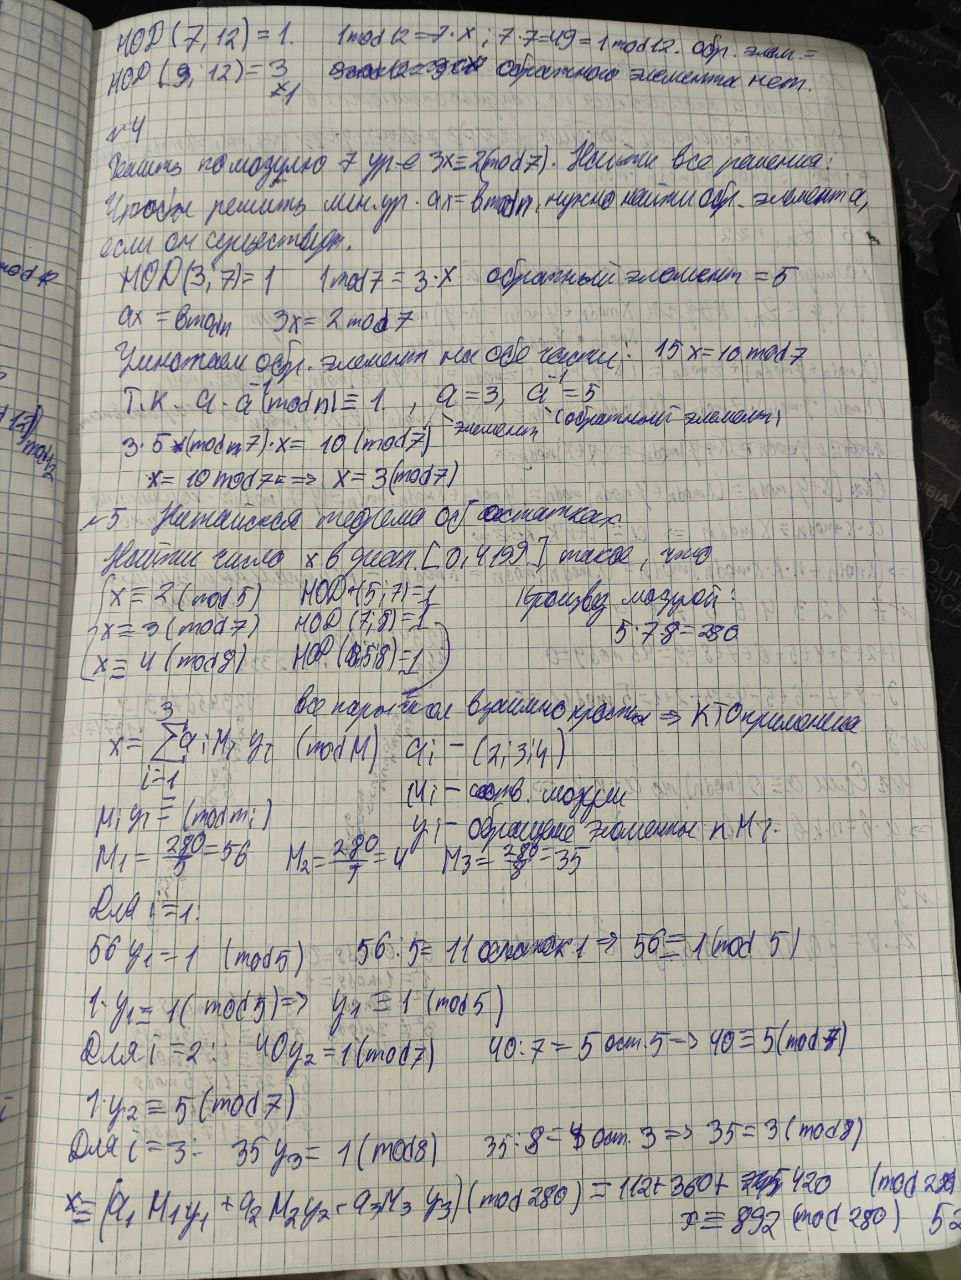 НОД(7,12)=1. 1mod12=7·x; 7·7=49=1mod12. обр. элем.=
НОД(9,12)=3 обратного элемента нет.
≠1
№4
Решить по модулю 7 ур-е 3x≡2(mod7). Найти все решения:
Чтобы решить лин. ур. ax=bmodn, нужно найти обр. элемент a,
если он существует.
НОД(3;7)=1 1mod7=3·x обратный элемент=5
ax=bmodn 3x=2mod7
Умножаем обр. элемент на обе части: 15x=10mod7
Т.к a·a⁻¹(modn)≡1. , a=3, a⁻¹=5
элемент (обратный элемент)
3·5(mod7)·x=10(mod7)
x=10mod7=>x=3(mod7)
№5 Китайская теорема об остатках.
Найти число x в диап. [0,4199] такое, что
x≡2(mod5) НОД(5;7)=1 Произвед. модулей:
x≡3(mod7) НОД(7;8)=1 5·7·8=280
x≡4(mod8) НОД(5;8)=1
все попарно взаимно просты => КТО применима
3
x=∑aᵢMᵢyᵢ (modM) aᵢ-(2;3;4)
i=1
Mᵢ-соотв. модули
Mᵢyᵢ≡(modmᵢ) yᵢ-обратные элементы к Mᵢ.
M₁=280/5=56 M₂=280/7=4 M₃=280/8=35
Для i=1:
56y₁=1 (mod5) 56:5=11 остаток 1=>56≡1(mod 5)
1·y₁≡1(mod5)=> y₁≡1(mod5)
Для i=2: 40y₂=1(mod7) 40:7=5 ост.5=>40≡5(mod7)
1·y₂≡5(mod7)
Для i=3: 35y₃=1(mod8) 35:8=4 ост. 3=>35=3(mod8)
x≡(a₁M₁y₁+a₂M₂y₂+a₃M₃y₃)(mod280)=112+360+420 (mod280
x≡892(mod280) 52